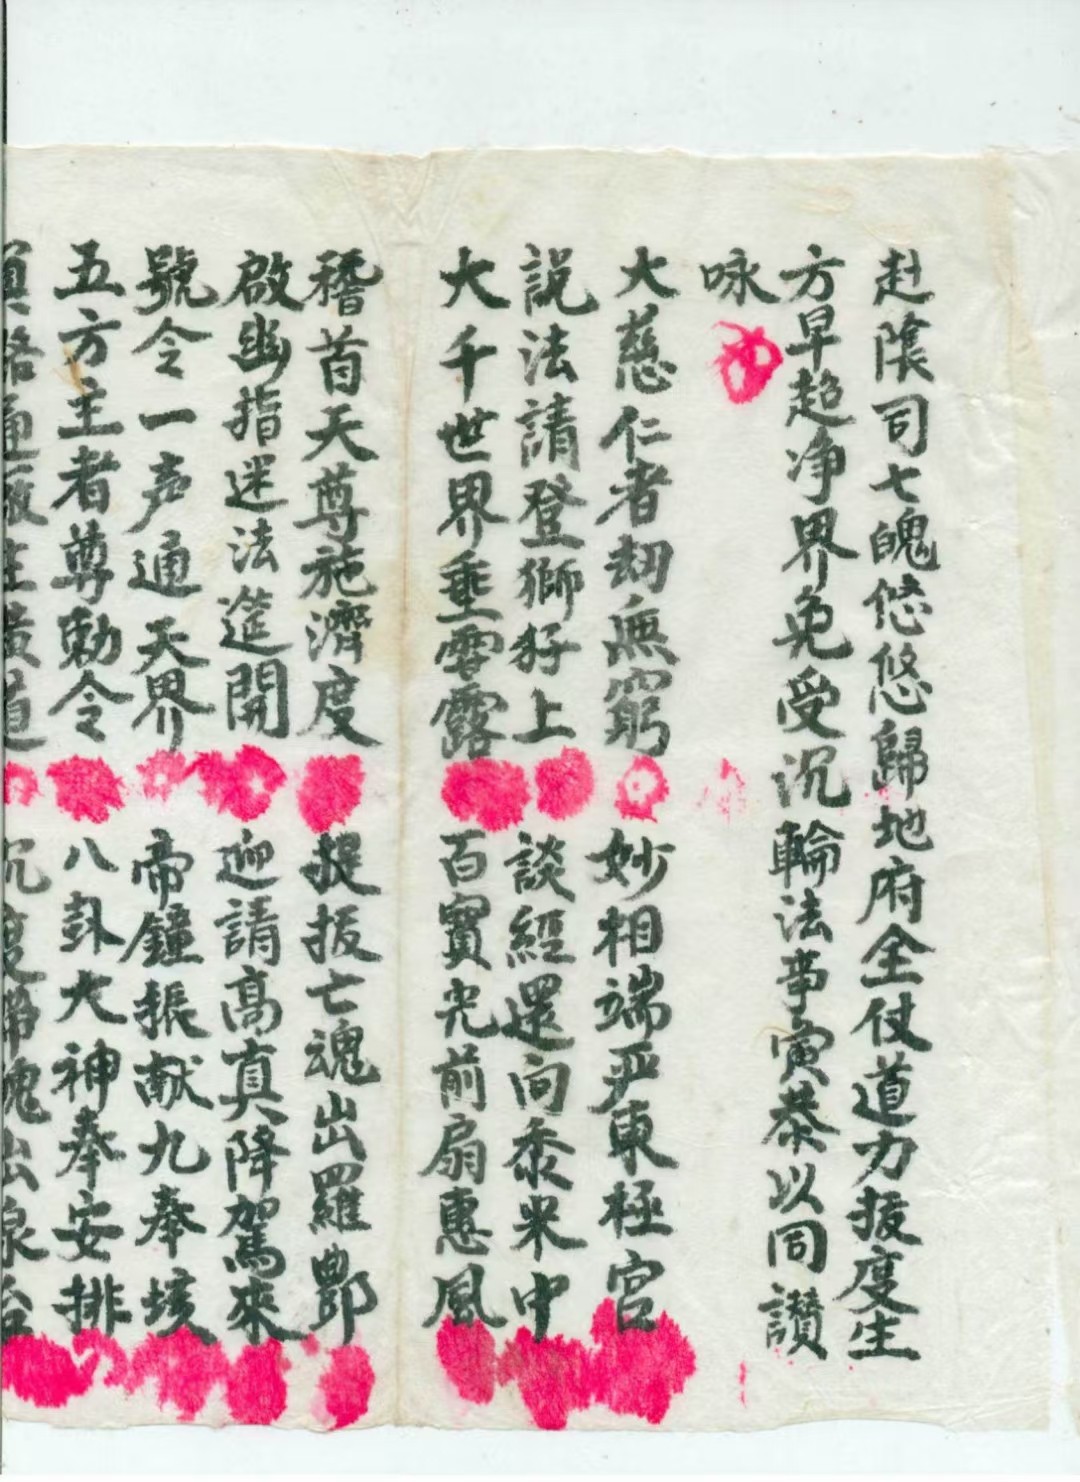 赴陰司七魄悠悠歸地府全仗道力拔度生
方早超净界免受沉輪法事寅恭以同讚
咏
大慈仁者劫無窮 妙相端严東極宫
説法請登獅犼上 談經還向黍米中
大千世界垂雪露 百寶光前扇惠風
稽首天尊施濟度 提拔亡魂出羅酆
啟幽指迷法筵開 迎請高真降駕來
號令一声通天界 帝鐘振献九奉垓
五方主者尊勅令 八卦大神奉安排